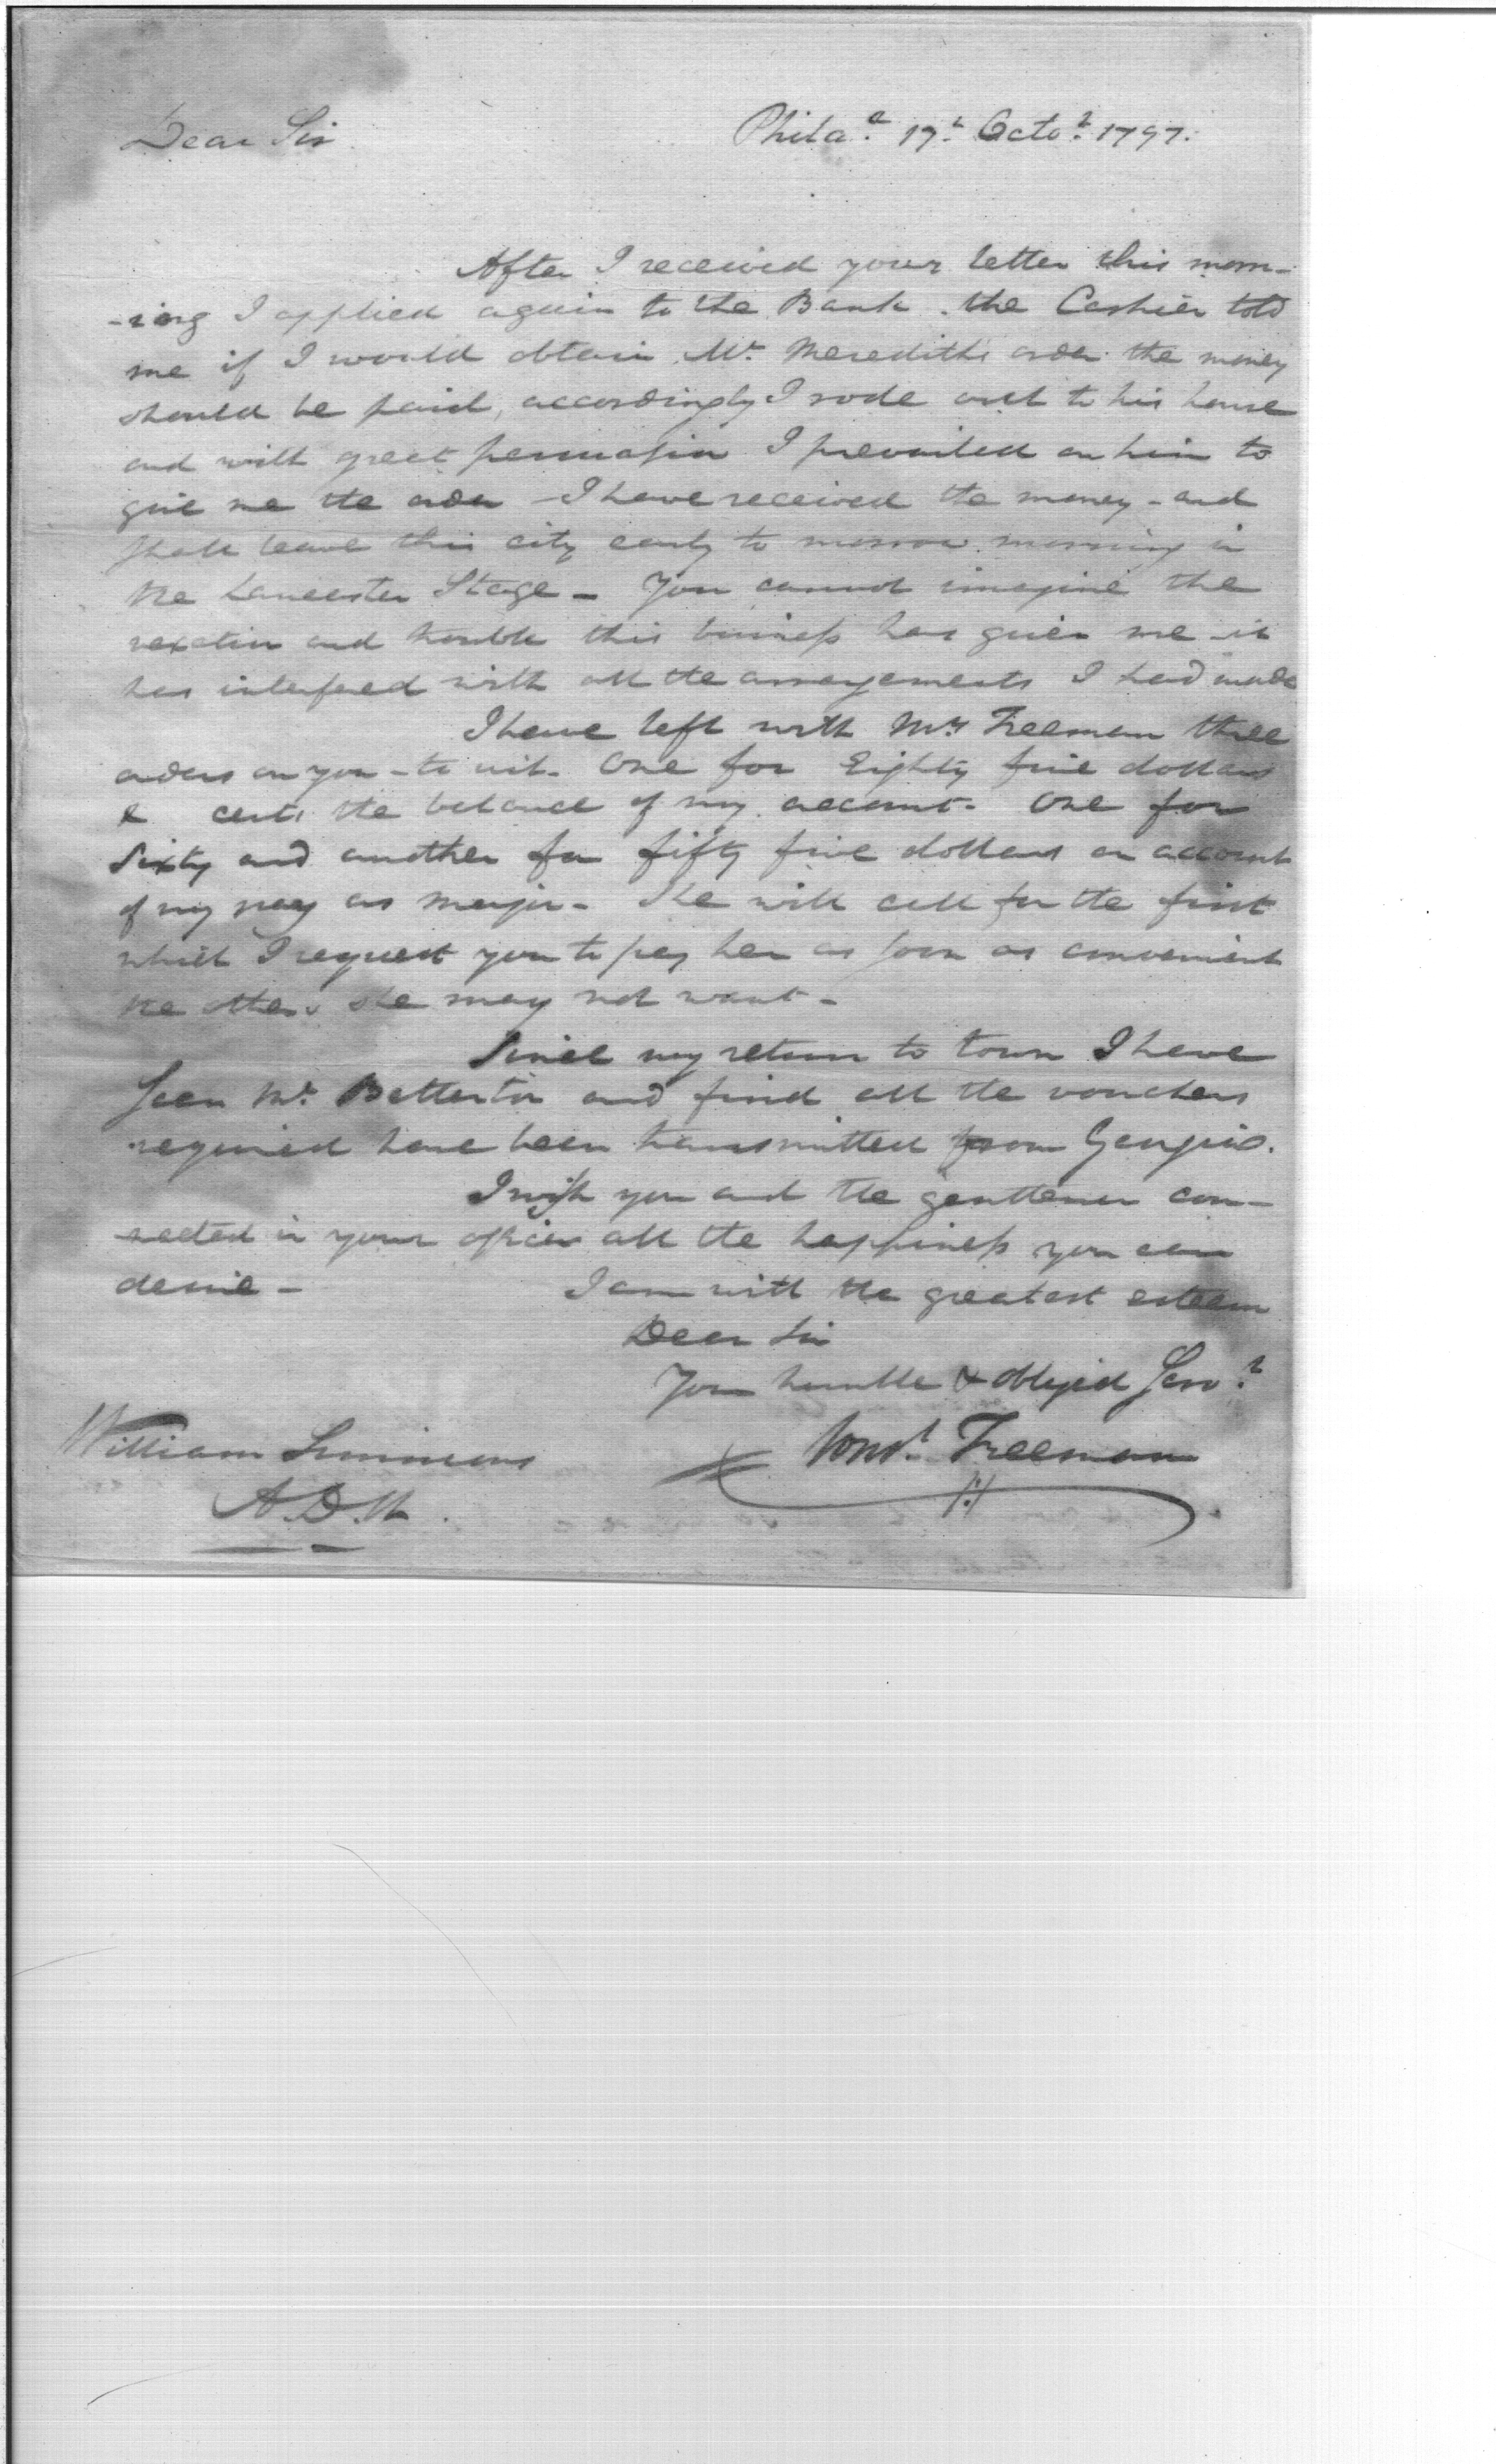 Dear Sir
Phila.ᵃ 17.ᵗ Octo.ʳ 1797.
After I received your letter this morn-
-ing I applied again to the Bank. the Cashier told
me if I would obtain Mʳ. Merediths order the money
should be paid, accordingly I rode out to his house
and with great persuasion I prevailed on him to
give me the order - I have received the money - and
shall leave this city early to morrow morning in
the Lancester Stage - You cannot imagine the
vexation and trouble this business has given me - it
has interfered with all the arrangements I had made
I have left with Mʳˢ Freeman three
orders on you - to wit. One for Eighty five dollars
& cents the balance of my account. One for
Sixty and another for fifty five dollars on account
of my pay as major - She will call for the first
which I request you to pay her as soon as convenient
the others she may not want -
Since my return to town I have
seen Mʳ. Betterton and find all the vouchers
required have been transmitted from Georgia.
I wish you and the gentlemen con-
-nected in your office all the happiness you can
desire -
I am with the greatest esteem
Dear Sir
Your humble & obliged Serv.ᵗ
Const. Freeman
William Simmons
A.D.W.